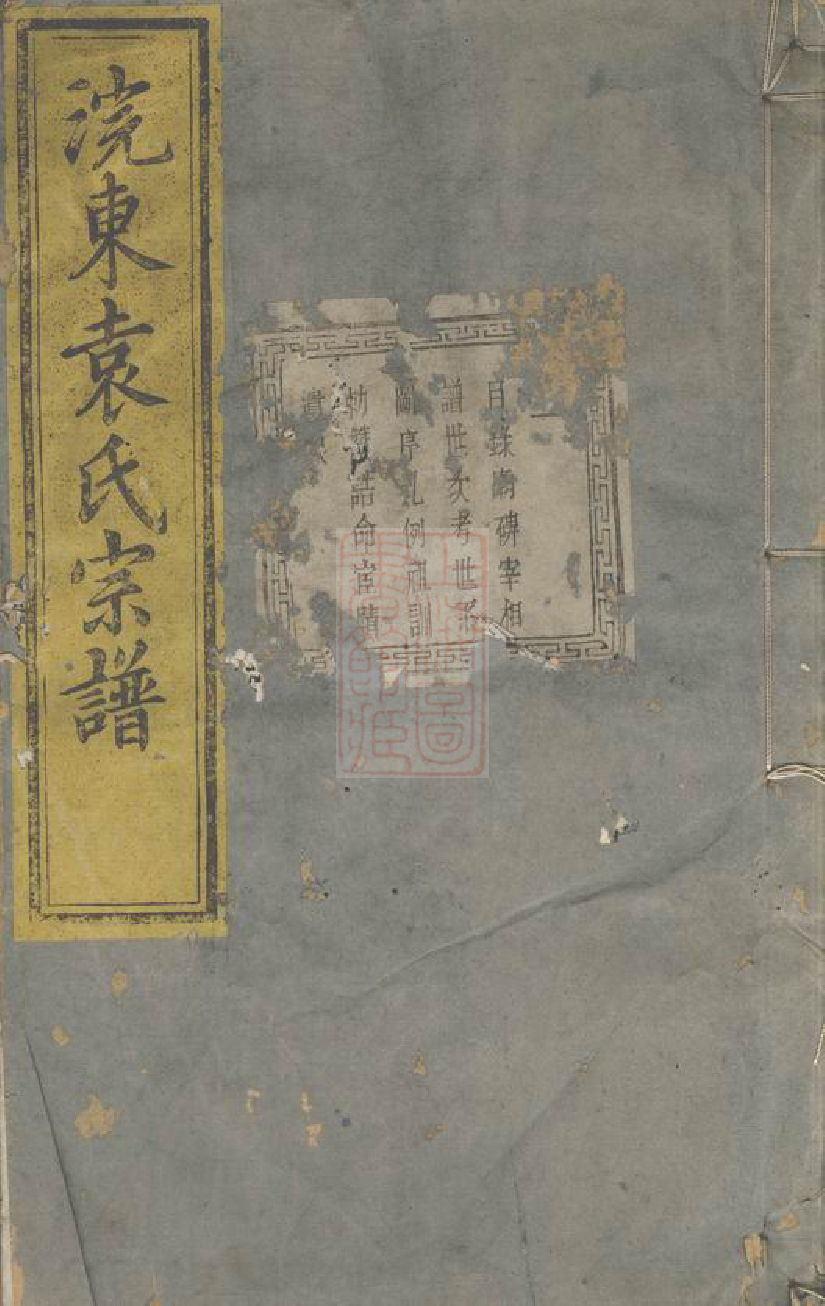 浣東袁氏宗譜
目錄廟碑宰相
譜世次考世系
圖序凡例祖訓
勅贊誥命宦蹟
遺